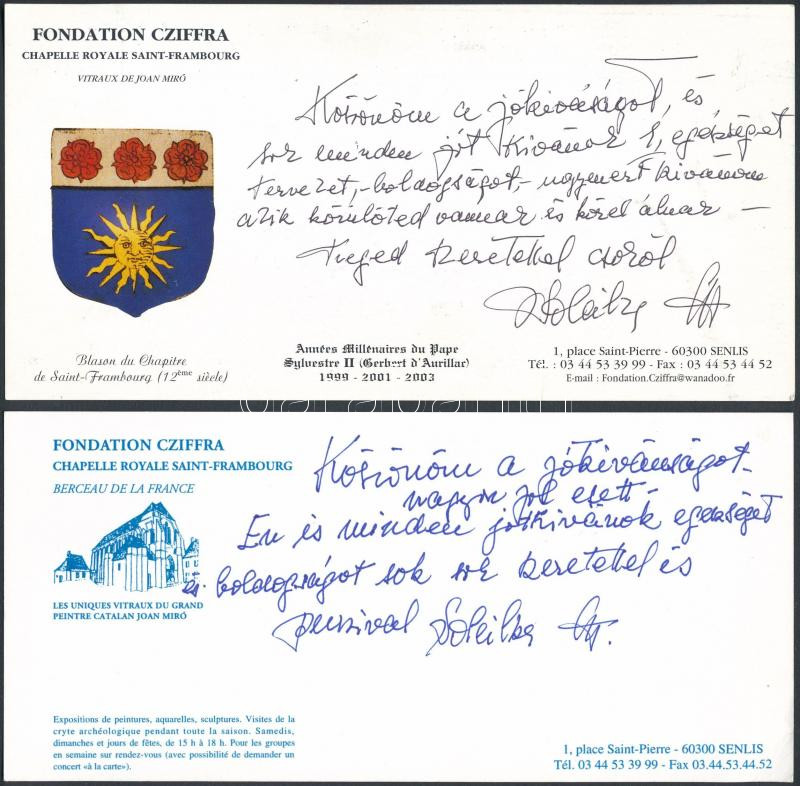 FONDATION CZIFFRA
CHAPELLE ROYALE SAINT-FRAMBOURG
VITRAUX DE JOAN MIRÓ
Köszönöm a jókívánságot, és
sok minden jót kívánok, egészséget
tervezet,-boldogságot,- ugyanezt kívánom
azik körülötted vannak és közel álnak —
Tieged szeretettel
Soleilka
Blason du Chapitre
de Saint-Frambourg (12ème siècle)
Années Millénaires du Pape
Sylvestre II (Gerbert d'Aurillac)
1999 - 2001 - 2003
1, place Saint-Pierre - 60300 SENLIS
Tél. : 03 44 53 39 99 - Fax : 03 44 53 44 52
E-mail : Fondation.Cziffra@wanadoo.fr
darabanth
FONDATION CZIFFRA
CHAPELLE ROYALE SAINT-FRAMBOURG
BERCEAU DE LA FRANCE
LES UNIQUES VITRAUX DU GRAND
PEINTRE CATALAN JOAN MIRÓ
Köszönöm a jókívánságot-
nagyon jol esett -
En is minden jótkívánok egészséget
és boldogságot sok sok szeretettel és
puszival Soleilka
Expositions de peintures, aquarelles, sculptures. Visites de la
cryte archéologique pendant toute la saison. Samedis,
dimanches et jours de fêtes, de 15 h à 18 h. Pour les groupes
en semaine sur rendez-vous (avec possibilité de demander un
concert «à la carte»).
1, place Saint-Pierre - 60300 SENLIS
Tél. 03 44 53 39 99 - Fax 03.44.53.44.52